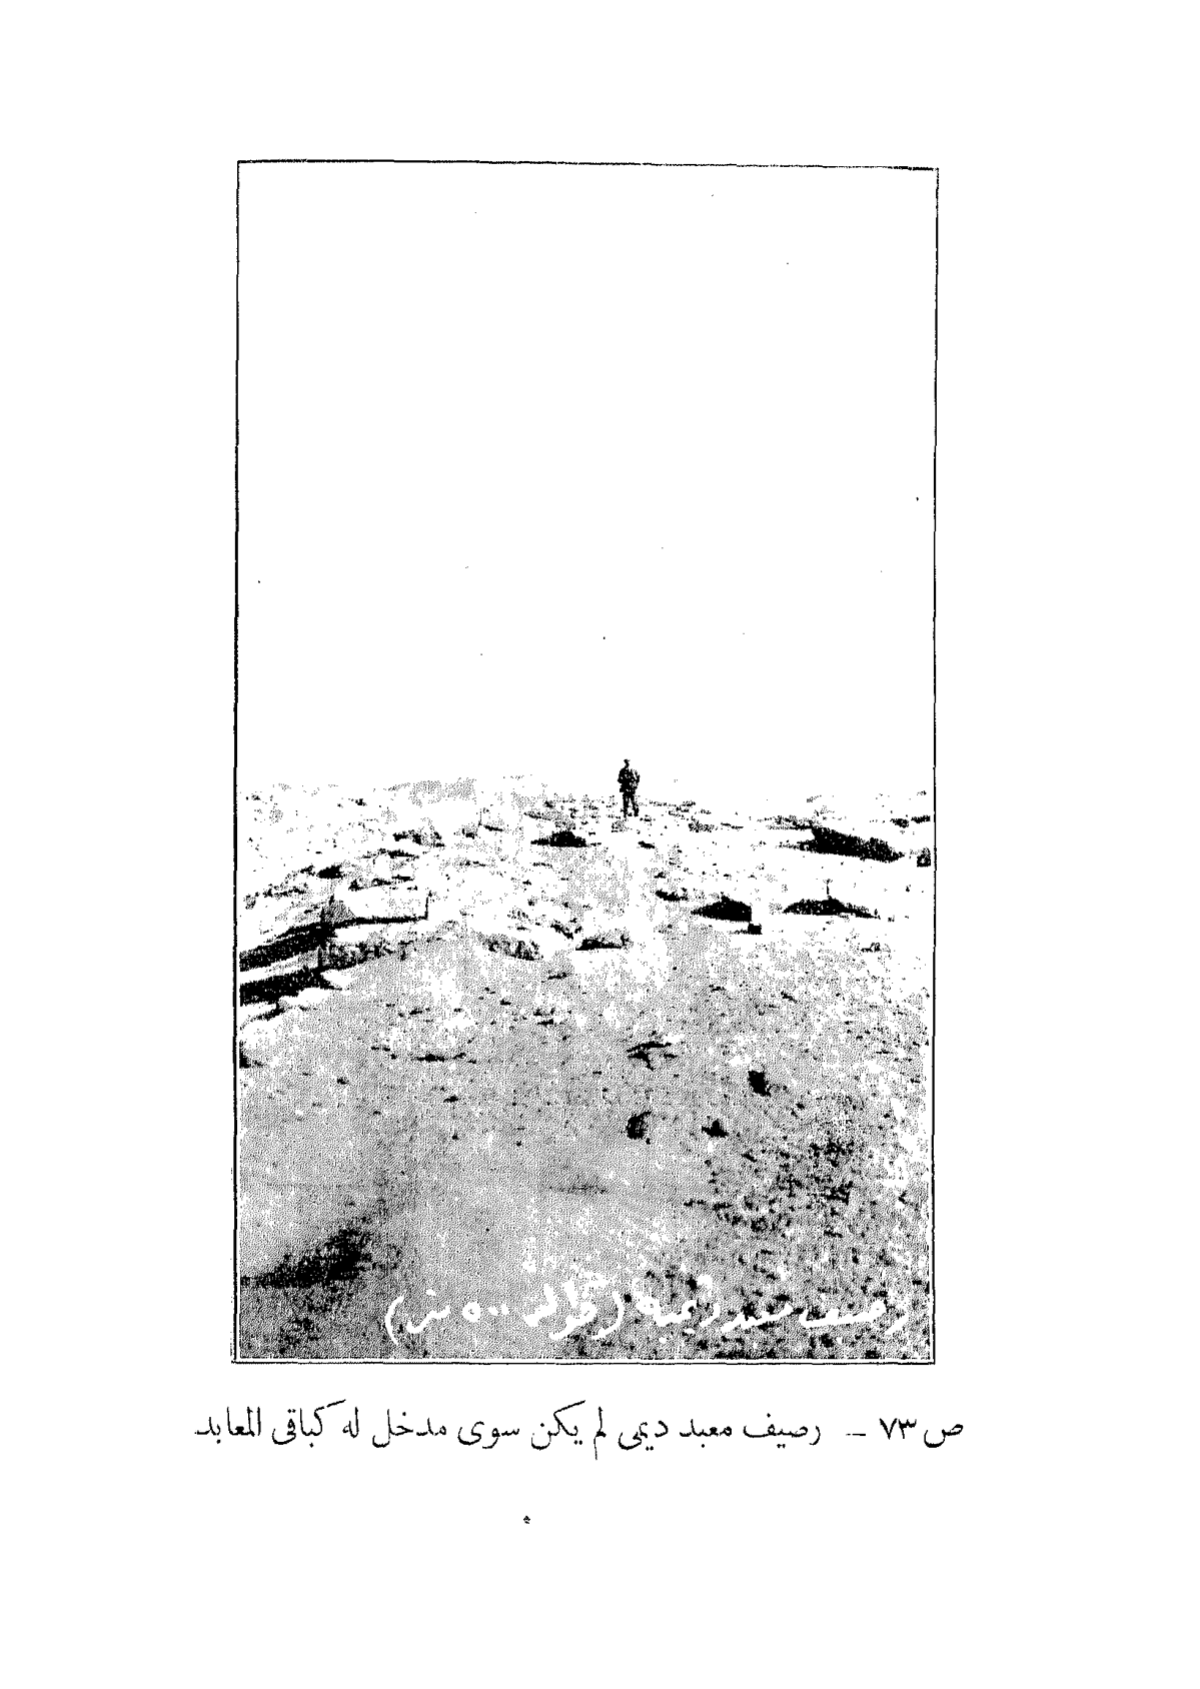 رصيف معبد ديميه (طوله ٥٠٠ متر)
ص ٧٣ ـ رصيف معبد ديمى لم يكن سوى مدخل له كباقى المعابد